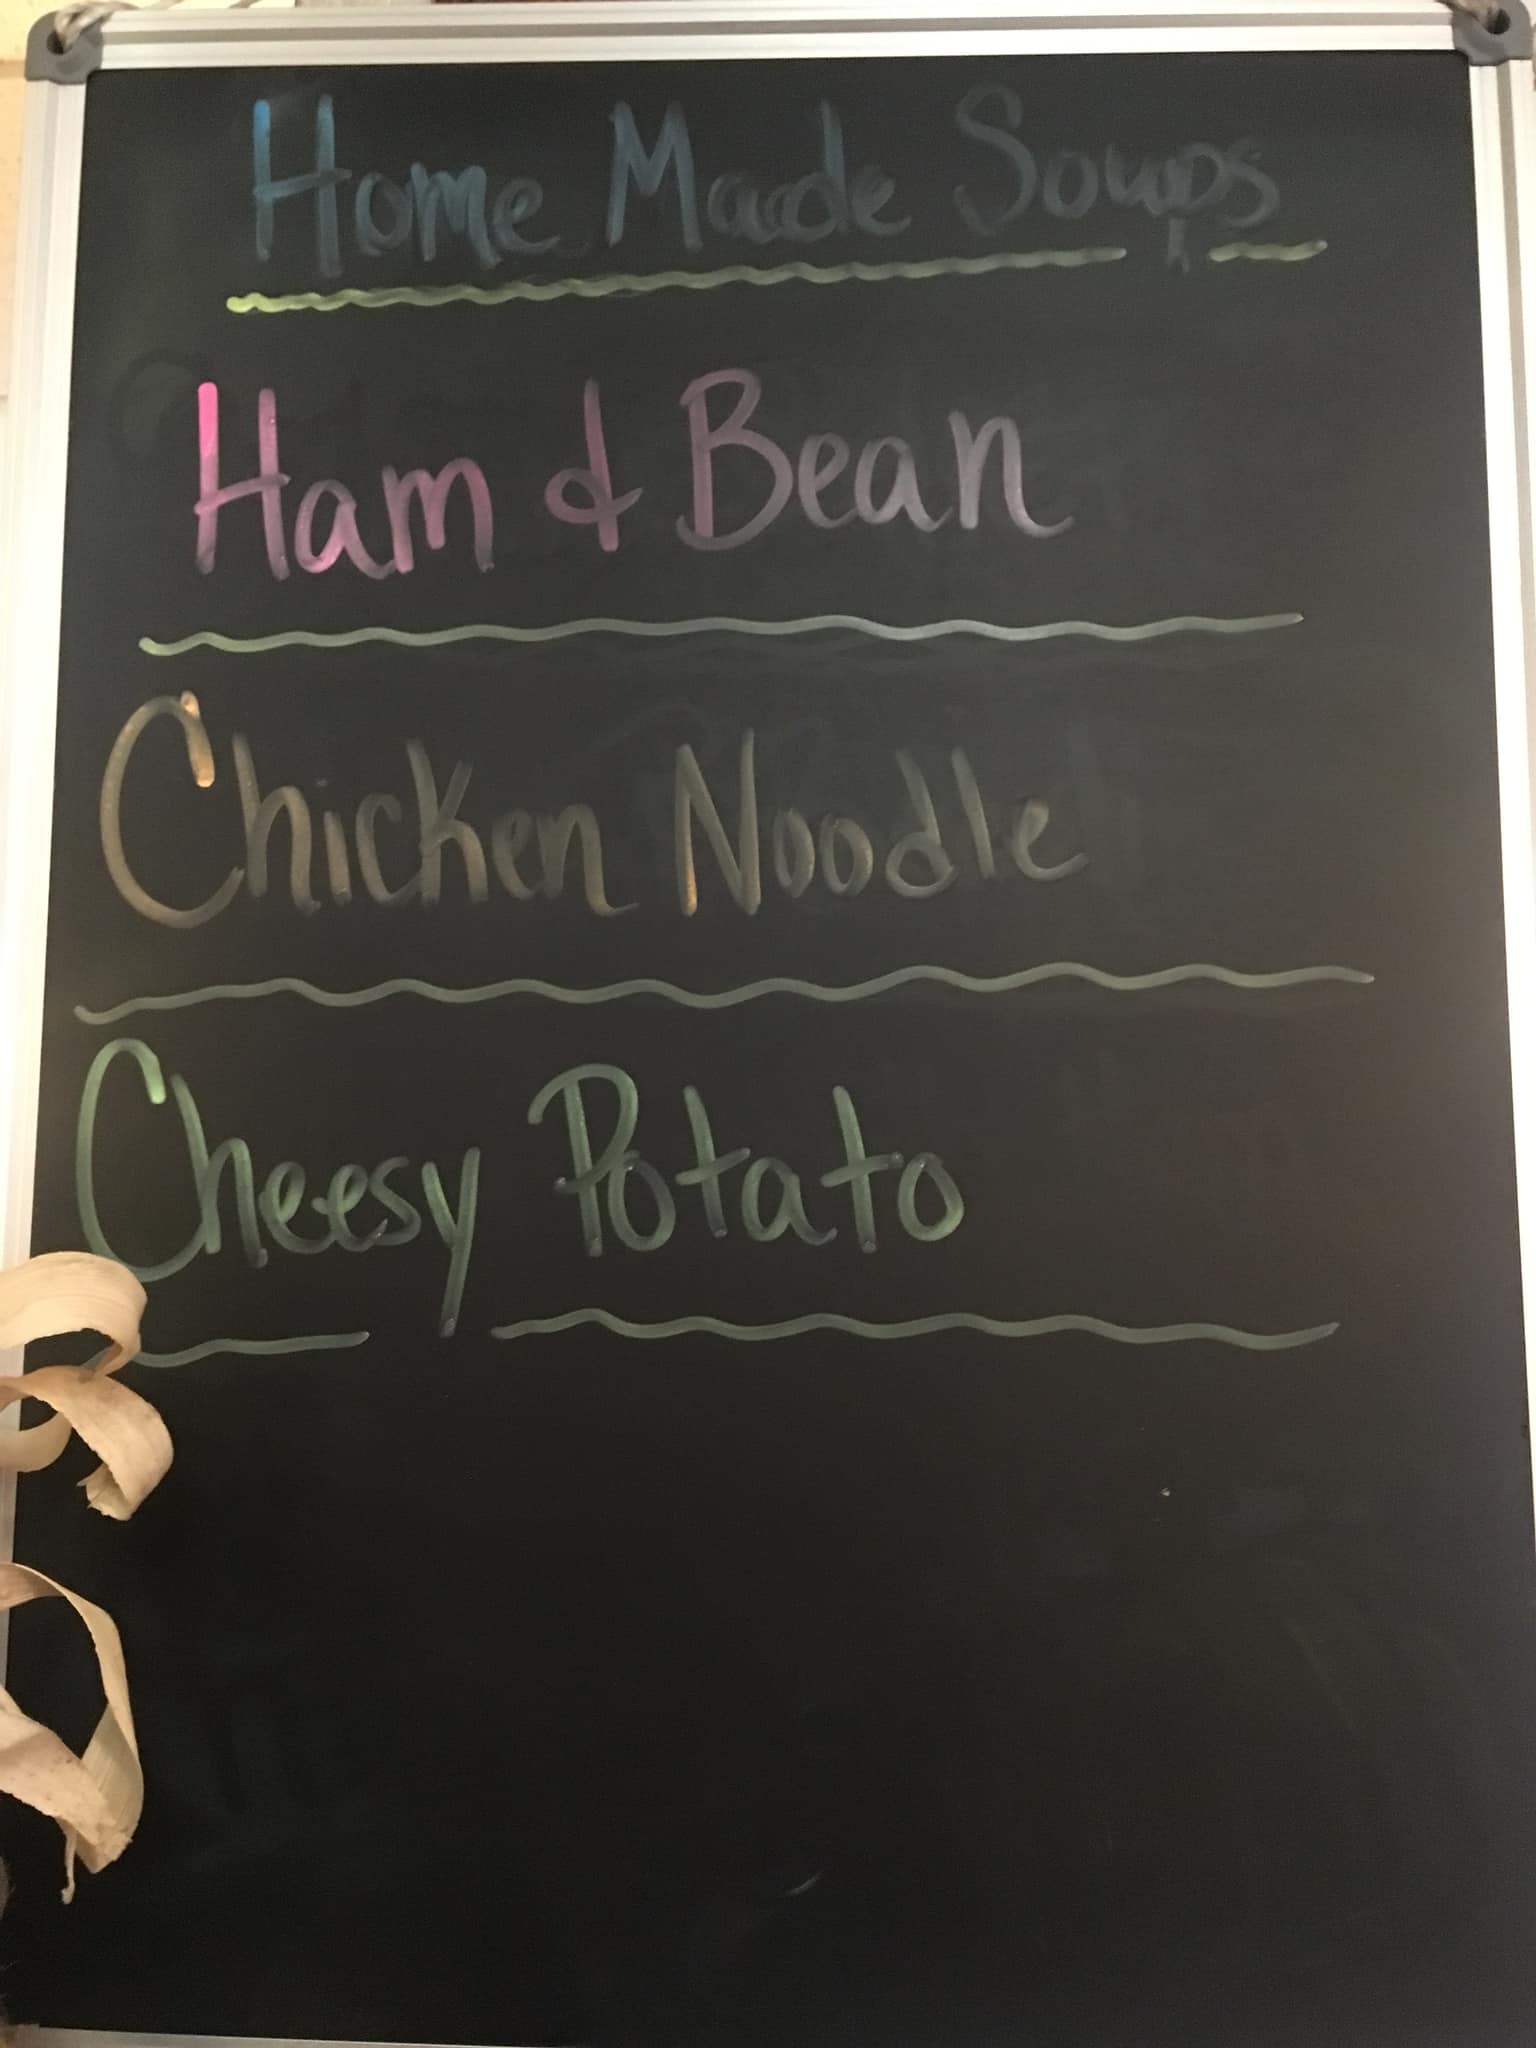 Home Made Soups
Ham & Bean
Chicken Noodle
Cheesy Potato